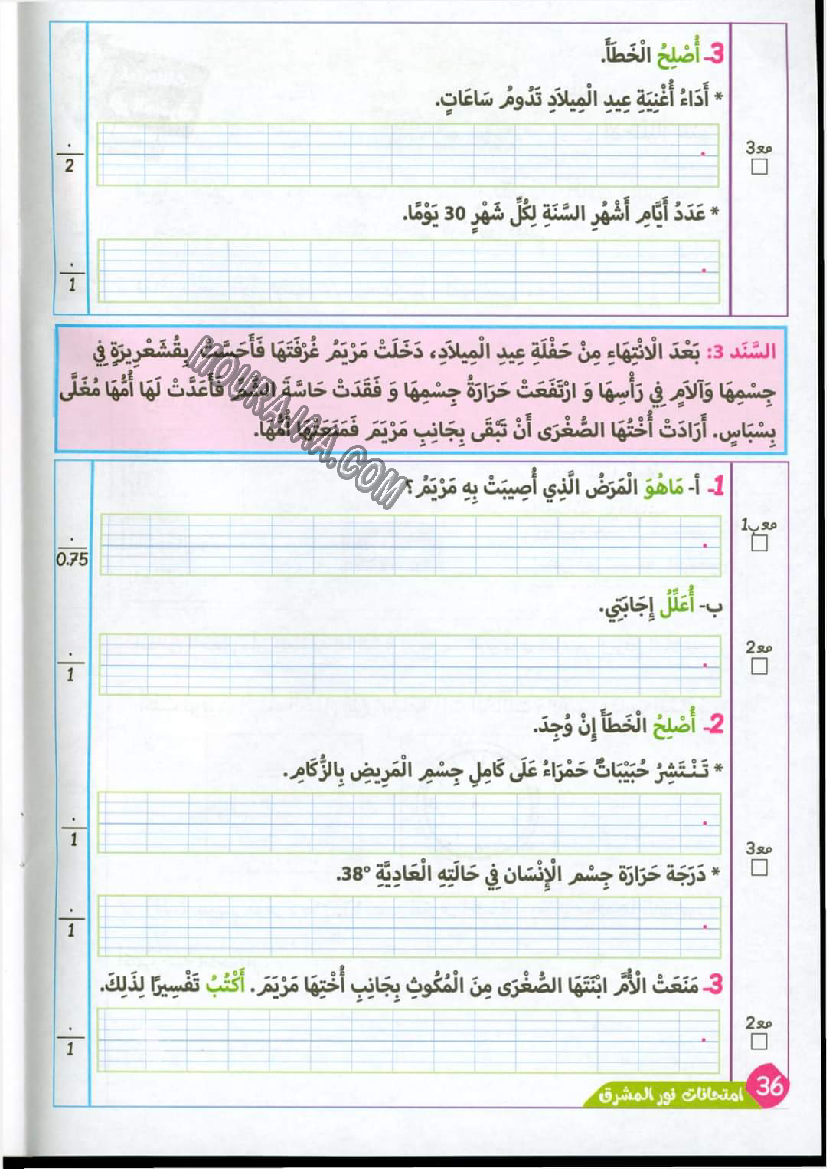 3- أُصْلِحُ الْخَطَأَ.
* أَدَاءُ أُغْنِيَةِ عِيدِ الْمِيلاَدِ تَدُومُ سَاعَاتٍ.
مع3
2
* عَدَدُ أَيَّامِ أَشْهُرِ السَّنَةِ لِكُلِّ شَهْرٍ 30 يَوْمًا.
1
السَّنَد 3: بَعْدَ الْانْتِهَاءِ مِنْ حَفْلَةِ عِيدِ الْمِيلاَدِ، دَخَلَتْ مَرْيَمُ غُرْفَتَهَا فَأَحَسَّتْ بِقُشَعْرِيرَةٍ فِي
جِسْمِهَا وَآلاَمٍ فِي رَأْسِهَا وَ ارْتَفَعَتْ حَرَارَةُ جِسْمِهَا وَ فَقَدَتْ حَاسَّةَ الشَّمِّ فَأَعَدَّتْ لَهَا أُمُّهَا مُغَلَّى
بِسْبَاسٍ. أَرَادَتْ أُخْتُهَا الصُّغْرَى أَنْ تَبْقَى بِجَانِبِ مَرْيَمَ فَمَنَعَتْهَا أُمُّهَا.
MOURAJAA.COM
1- أ- مَاهُوَ الْمَرَضُ الَّذِي أُصِيبَتْ بِهِ مَرْيَمُ؟
مع ب1
0.75
ب- أُعَلِّلُ إِجَابَتِي.
مع2
1
2- أُصْلِحُ الْخَطَأَ إِنْ وُجِدَ.
* تَنْتَشِرُ حُبَيْبَاتٌ حَمْرَاءُ عَلَى كَامِلِ جِسْمِ الْمَرِيضِ بِالزُّكَامِ.
1
مع3
* دَرَجَة حَرَارَة جِسْم الْإِنْسَان فِي حَالَتِهِ الْعَادِيَّةِ °38.
1
3- مَنَعَتْ الْأُمَّ ابْنَتَهَا الصُّغْرَى مِنَ الْمُكُوثِ بِجَانِبِ أُخْتِهَا مَرْيَمَ. أَكْتُبُ تَفْسِيرًا لِذَلِكَ.
مع2
1
36
امتحانات نور المشرق